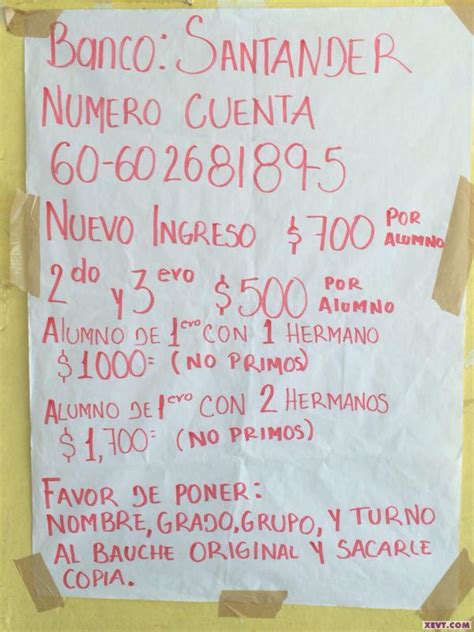 Banco: SANTANDER
NUMERO CUENTA
60-602681895
NUEVO INGRESO $700 POR ALUMNO
2do y 3ero $500 POR ALUMNO
ALUMNO DE 1ero CON 1 HERMANO
$1000= (NO PRIMOS)
ALUMNO DE 1ero CON 2 HERMANOS
$1,700= (NO PRIMOS)
FAVOR DE PONER:
NOMBRE, GRADO, GRUPO, Y TURNO
AL BAUCHE ORIGINAL Y SACARLE
COPIA.
XEVT.COM